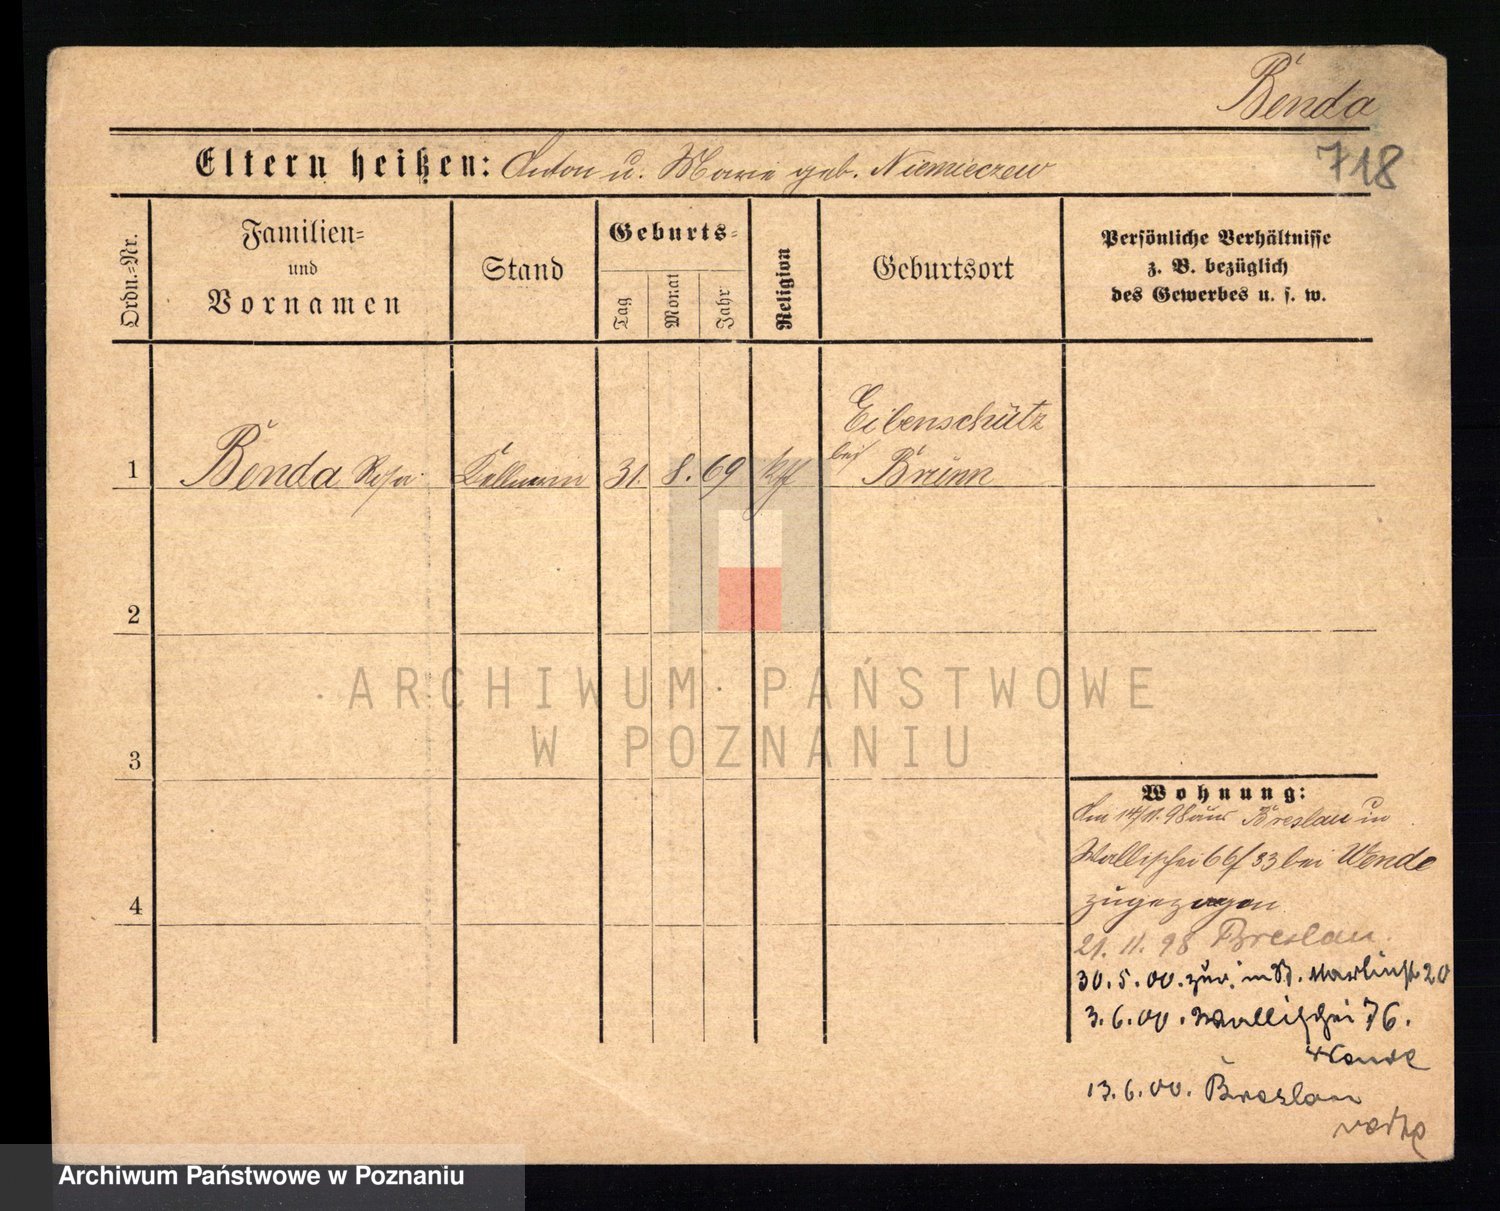 Benda
718
Eltern heißen: Anton u. Marie geb. Niemieczew
Ordn.=Nr.
Familien=
und
Vornamen
Stand
Geburts=
Tag
Monat
Jahr
Religion
Geburtsort
Persönliche Verhältnisse
z. B. bezüglich
des Gewerbes u. s. w.
1 Benda Rosa Kellnerin 31. 8. 69 kath
Eibenschütz
bei Brünn
2
3
4
ARCHIWUM PAŃSTWOWE
W POZNANIU
Wohnung:
Am 14/11.98 aus Breslau in
Wallischei 66/33 bei Wende
zugezogen
21. 11. 98 Breslau.
30.5.00. zur. in St. Martinstr 20
3.6.00. Wallischei 76.
Wende
13.6.00. Breslau
Archiwum Państwowe w Poznaniu